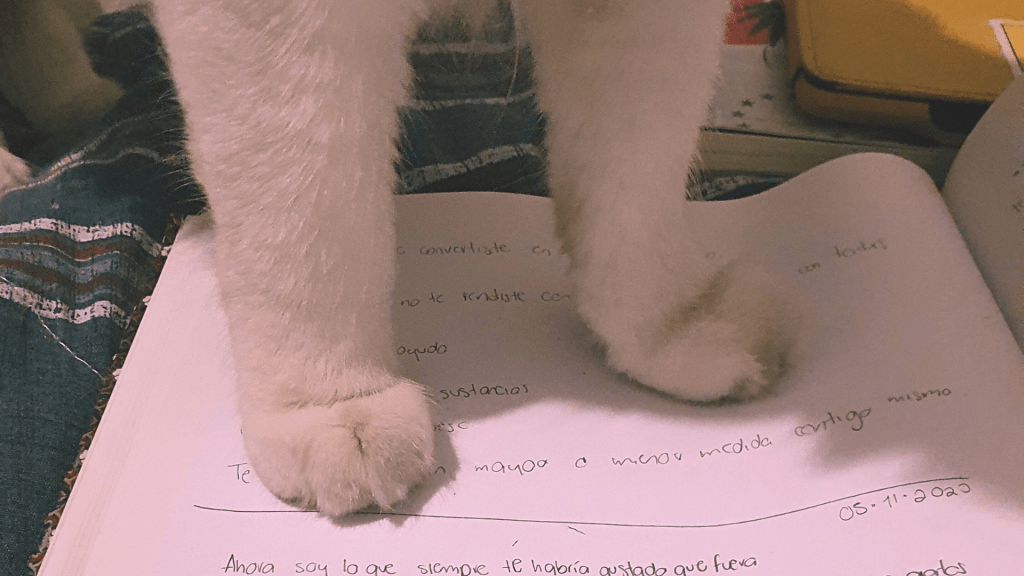 convertiste en con todas
no te rendiste con
ayuda
sustancias
Te mayor o menor medida contigo mismo
05-11-2020
Ahora soy lo que siempre te habría gustado que fuera